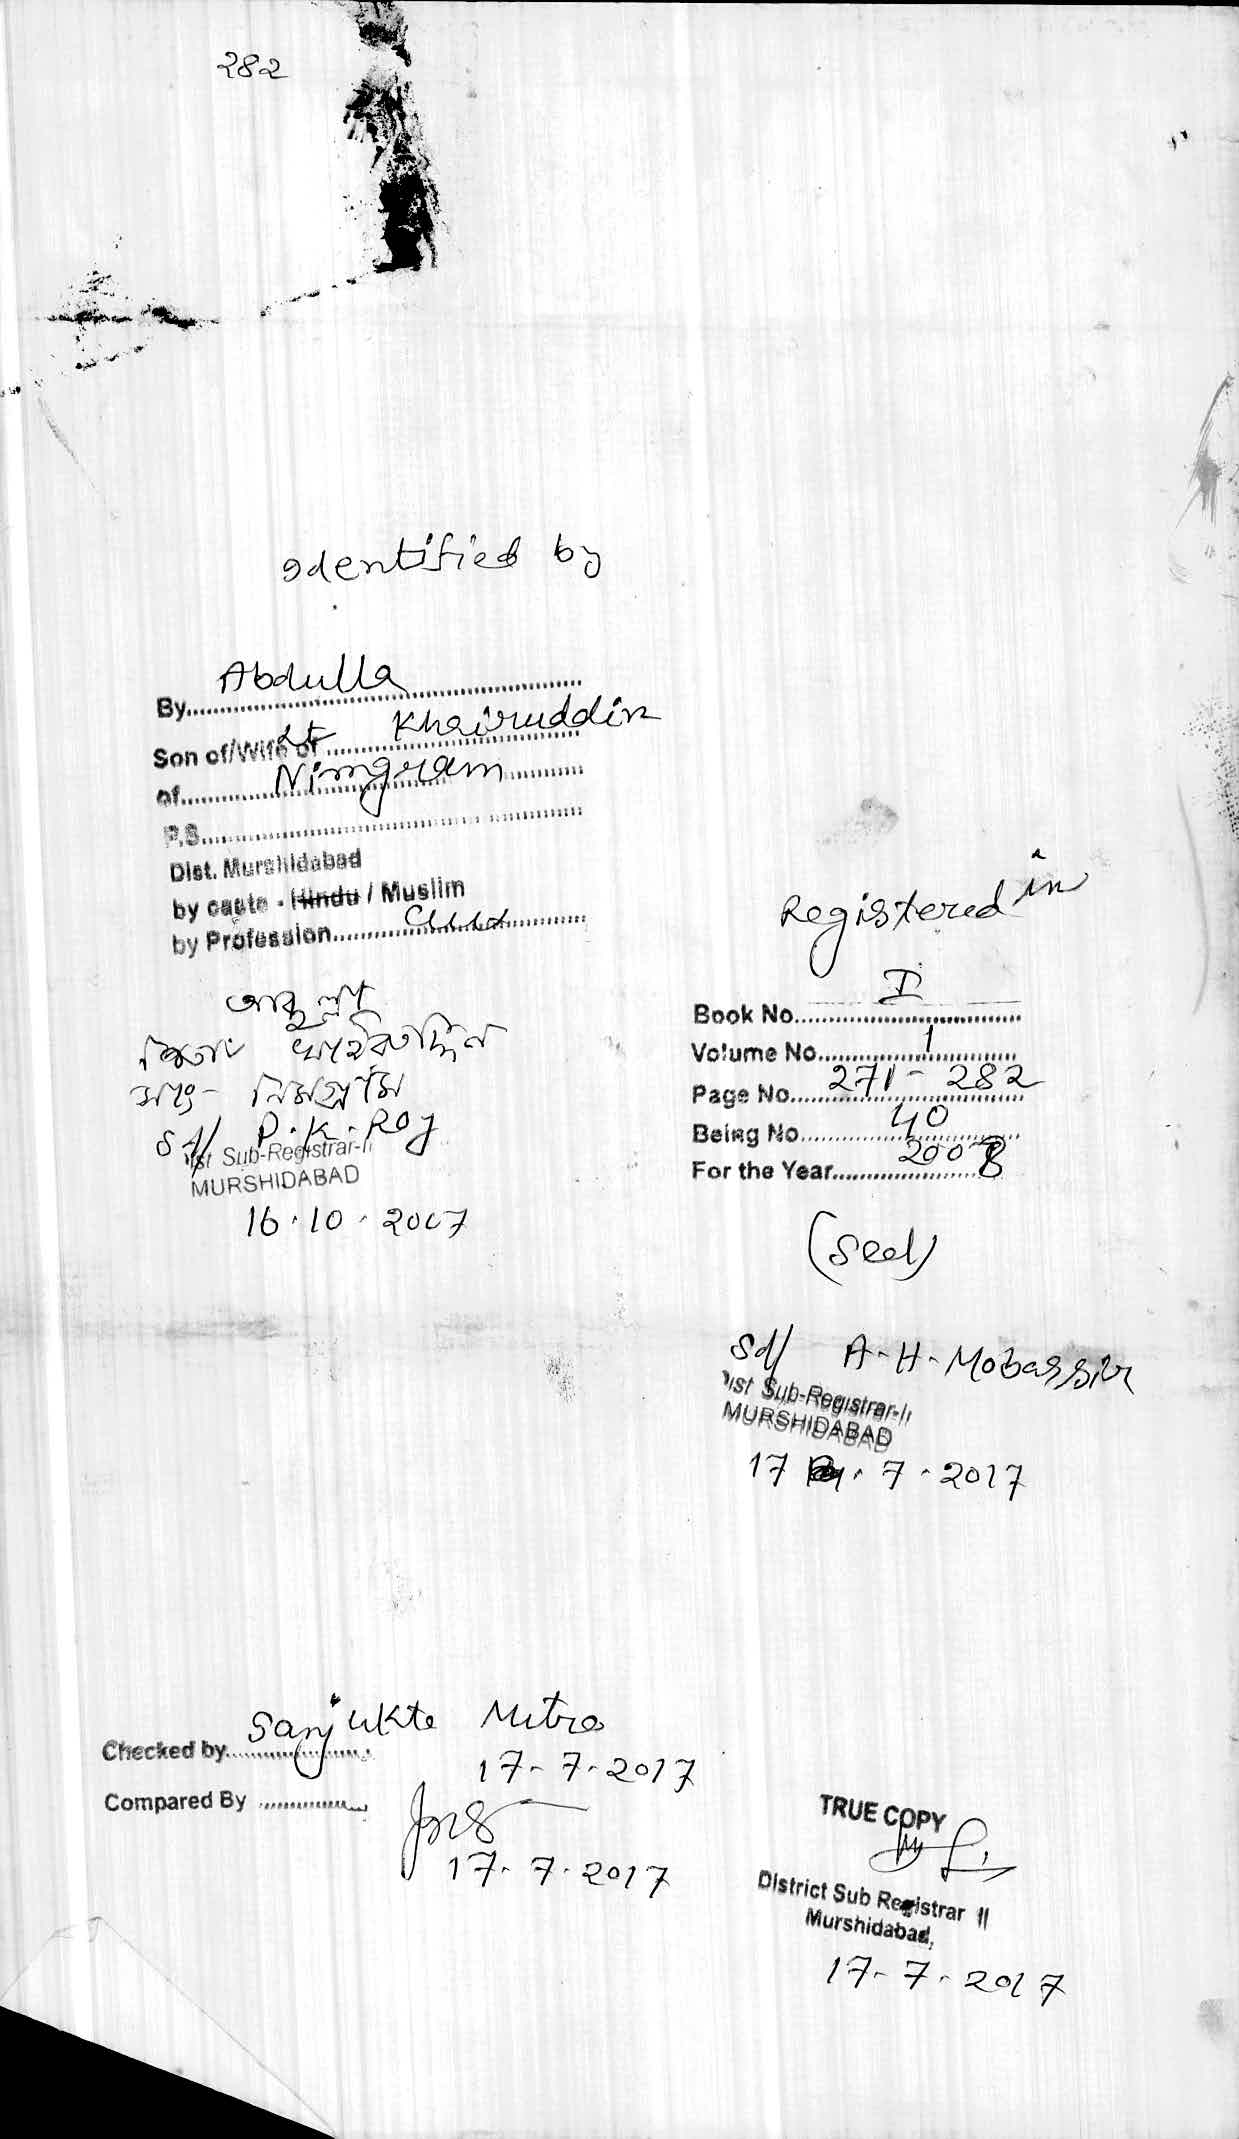 282
Identified by
By Abdulla
Son of/Wife of Lt Khairuddin
of Nimgram
P.S.
Dist. Murshidabad
by caste - Hindu / Muslim
by Profession
আব্দুল্লা
পিতা খাইরুদ্দিন
সাং- নিমগ্রাম
Sd/ P.K. Roy
Dist Sub-Registrar-II
MURSHIDABAD
16.10.2007
Registered in
Book No. I
Volume No. 1
Page No. 271 - 282
Being No. 40
For the Year 2008
(Seal)
Sd/ A-H-Mobassir
Dist Sub-Registrar-II
MURSHIDABAD
17 . 7 . 2017
Checked by Sanjukta Mitra
17-7-2017
Compared By
17-7-2017
TRUE COPY
District Sub Registrar II
Murshidabad,
17-7-2017